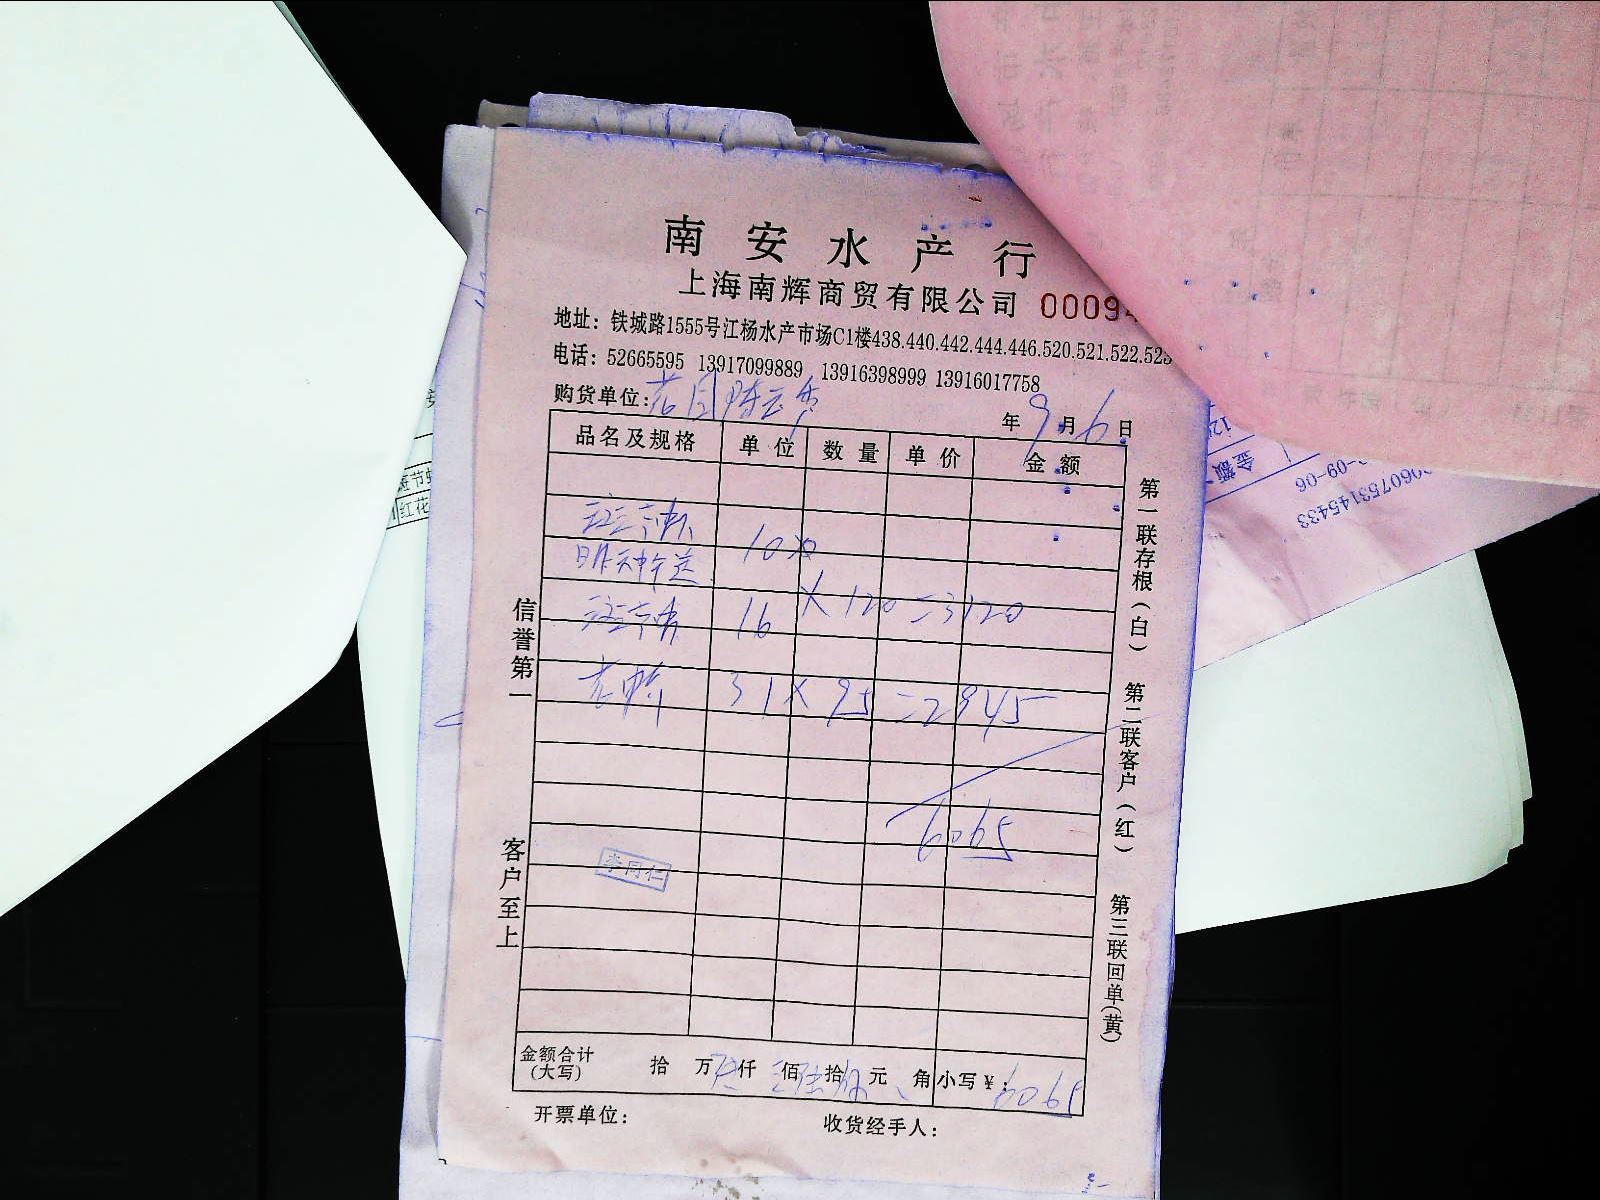 南安水产行
上海南辉商贸有限公司 0009
地址：铁城路1555号江杨水产市场C1楼438.440.442.444.446.520.521.522.523
电话：52665595 13917099889 13916398999 13916017758
购货单位：
年 9 月 6 日
品名及规格 单位 数量 单价 金额
10
昨天中午送
16 × 120 = 3120
31 × 95 = 2945
6065
李同仁
金额合计(大写) 拾 万 仟 佰 拾 元 角 小写¥：6065
开票单位： 收货经手人：
信誉第一
客户至上
第一联存根(白)
第二联客户(红)
第三联回单(黄)
金额
-09-06
060753145433
红花